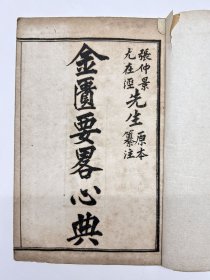 張仲景先生原本
尤在涇先生纂注
金匱要畧心典